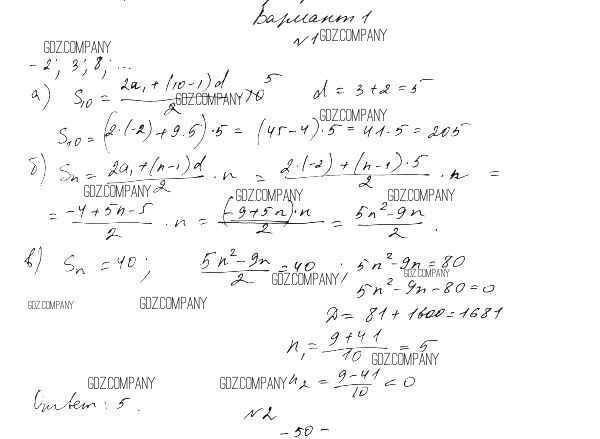 Вариант 1
№1 GDZ.COMPANY
GDZ.COMPANY
-2; 3; 8; ...
а) S₁₀ = (2a₁ + (10-1)d)/2 · 10 5 d = 3 + 2 = 5
GDZ.COMPANY
GDZ.COMPANY
S₁₀ = (2·(-2) + 9·5)·5 = (45-4)·5 = 41·5 = 205
б) Sₙ = (2a₁ + (n-1)d)/2 · n = (2·(-2) + (n-1)·5)/2 · n =
GDZ.COMPANY GDZ.COMPANY GDZ.COMPANY
= (-4+5n-5)/2 · n = ((-9+5n)·n)/2 = (5n²-9n)/2.
в) Sₙ = 40; (5n²-9n)/2 = 40; 5n²-9n = 80
GDZ.COMPANY GDZ.COMPANY
5n²-9n-80=0
GDZ.COMPANY GDZ.COMPANY
D = 81 + 1600 = 1681
n₁ = (9+41)/10 = 5
GDZ.COMPANY
GDZ.COMPANY GDZ.COMPANY n₂ = (9-41)/10 < 0
Ответ: 5.
№2
- 50 -